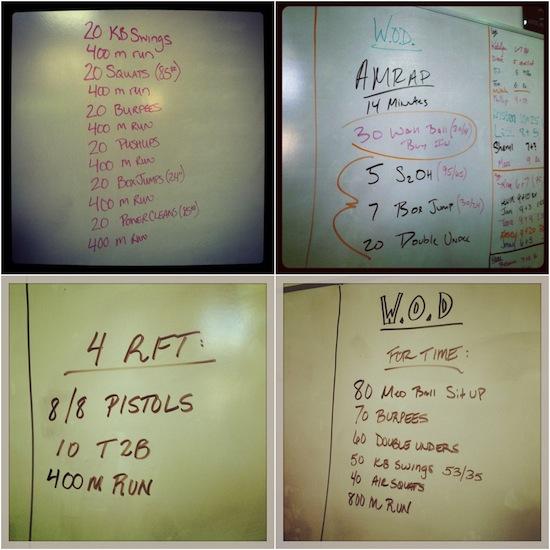 20 KB Swings
400 m run
20 Squats (85#)
400 m run
20 Burpees
400 m Run
20 Pushups
400 m Run
20 Box Jumps (24")
400 m Run
20 Power Cleans (85#)
400 m Run
W.O.D.
AMRAP
14 Minutes
30 Wall Ball (20/14)
Buy In
5 S2OH (95/65)
7 Box Jump (30/24)
20 Double Under
Sherri 7+3
4 RFT:
8/8 PISTOLS
10 T2B
400 M RUN
W.O.D
FOR TIME:
80 Med Ball Sit UP
70 BURPEES
60 DOUBLE UNDERS
50 KB SWINGS 53/35
40 AIR SQUATS
800 M RUN